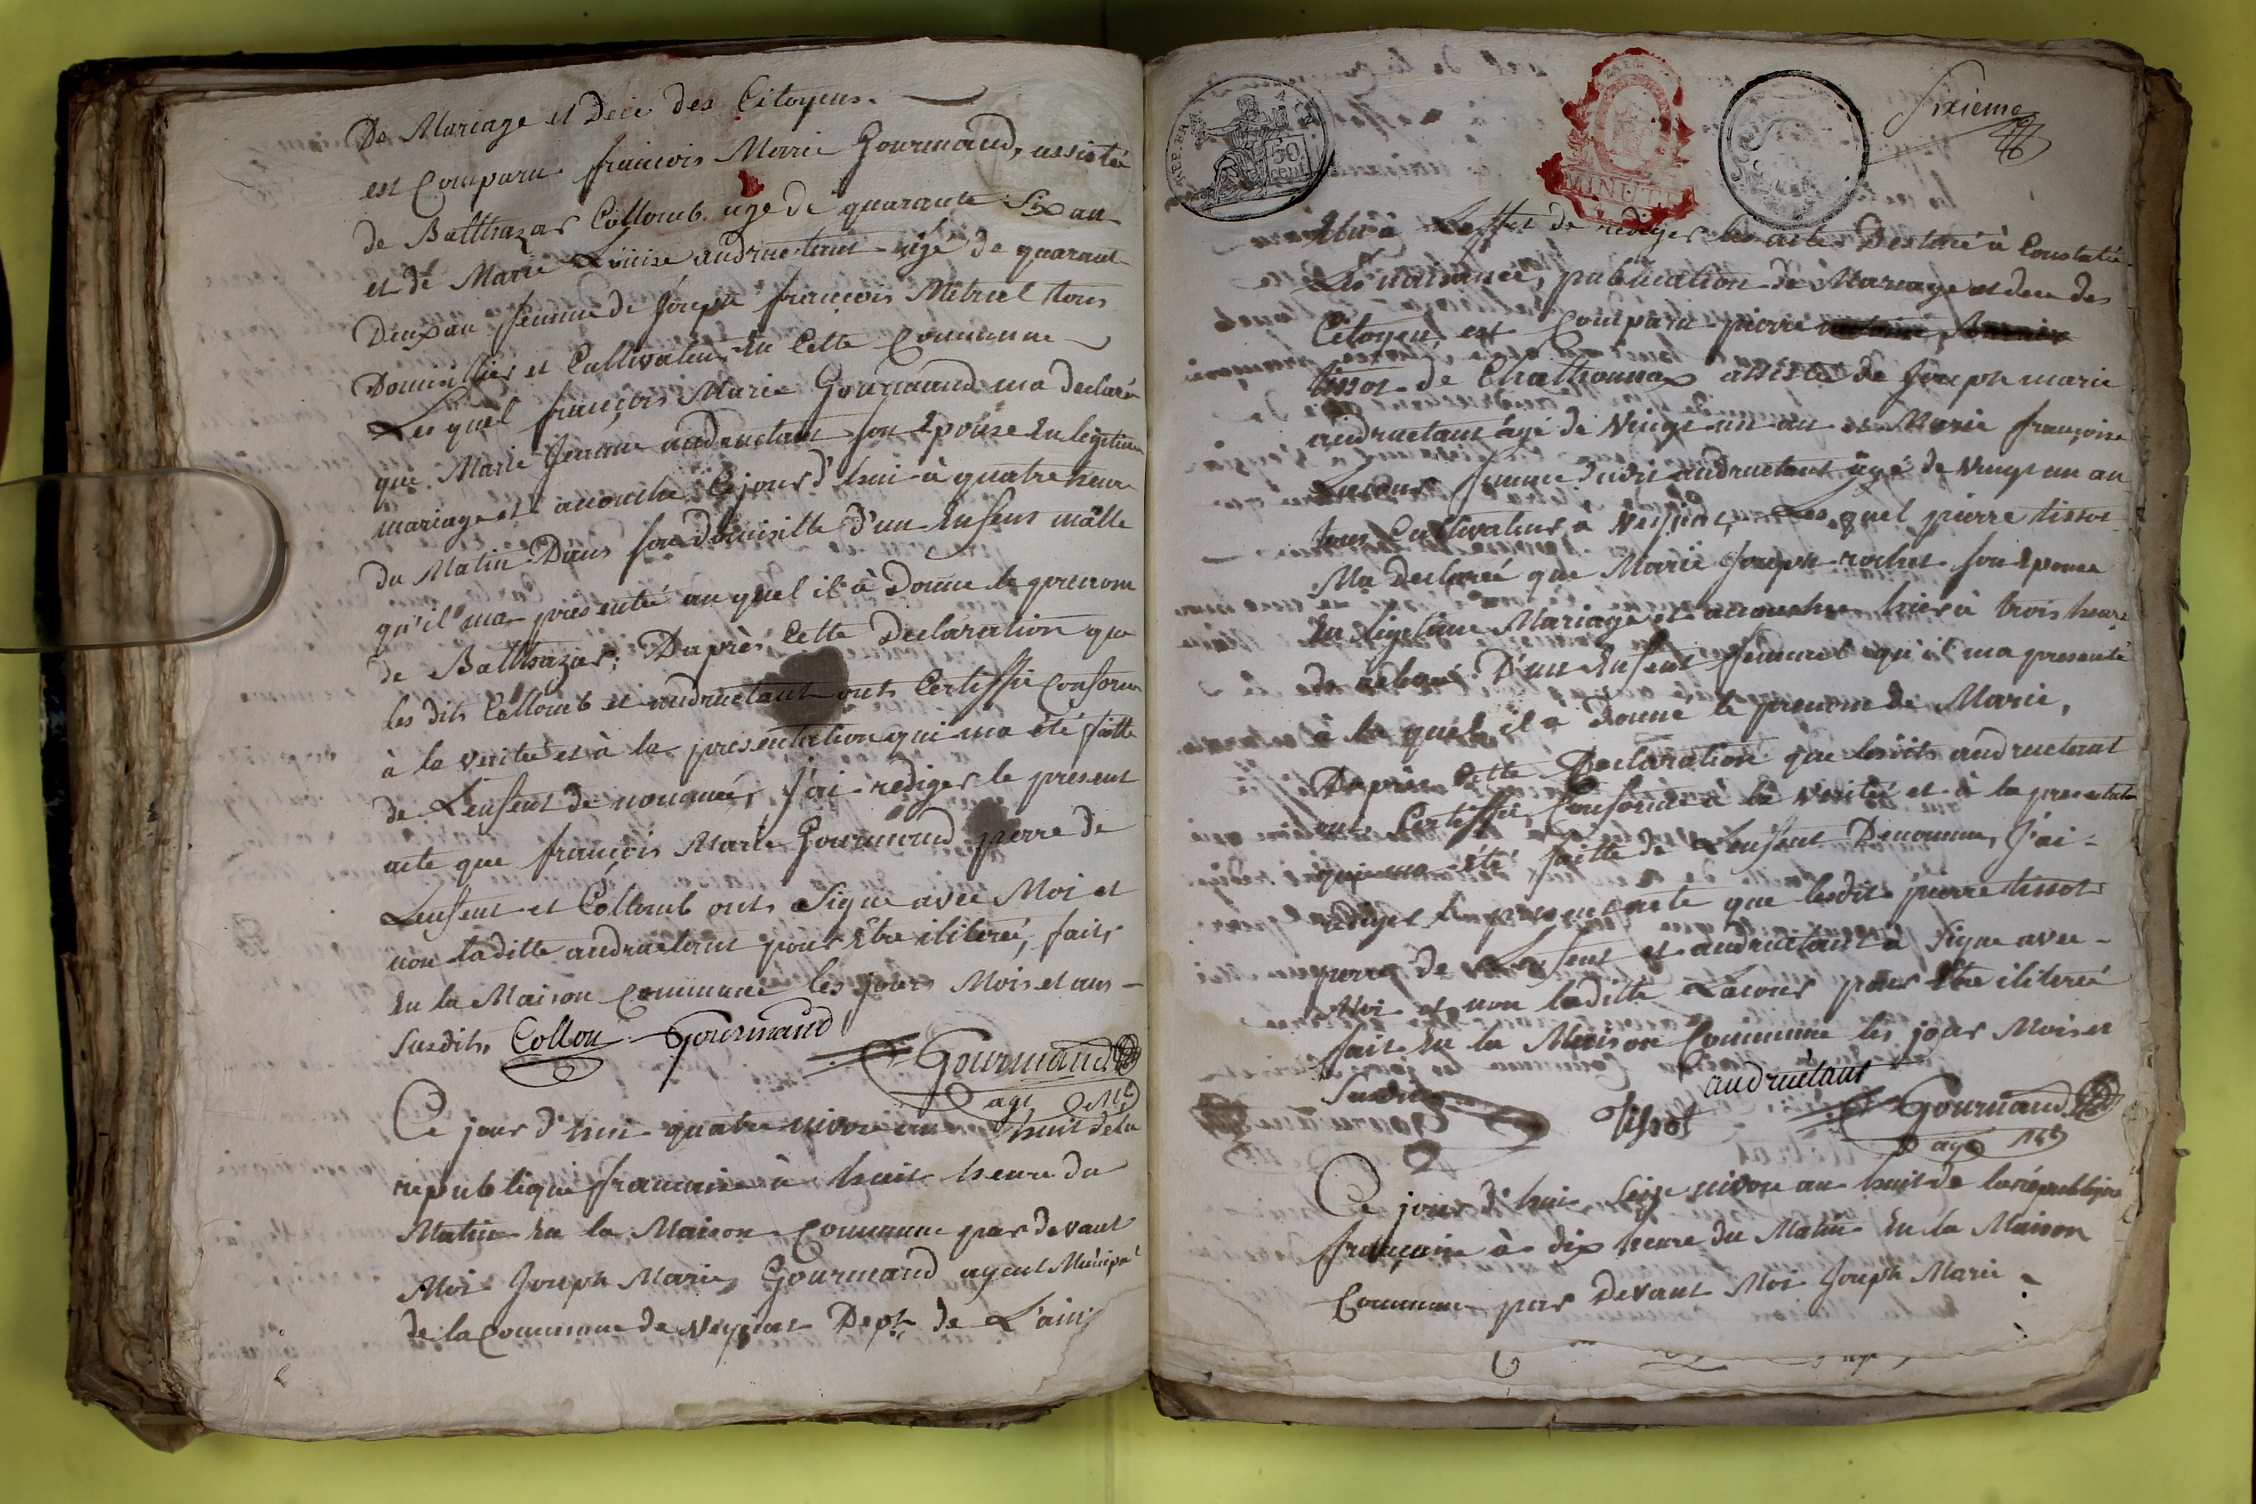 De Mariage et Decé des Citoyens.
est Comparu françois Marie Gourmand, assistée
de Balthazar Collomb age de quarante Six an
et de Marie Louise audructant agé de quarant
Deux an femme de Joseph françois Metral tous
Domicilies et Cultivateur En Cette Commune
Les quel françois Marie Gourmand ma declaré
que Marie Jeanne audructant son Epouse En legitime
mariage et accouchée Ce jourd'hui à quatre heure
du Matin Dans son domicille d'un Enfent mâlle
qu'il ma presenté au quel il à Donné le prenom
de Balthazar; Daprès Cette Declaration que
les dits Collomb et audructant ont Certiffié Conforme
à la veritée et à la presentation qui ma été faitte
de Lenfent de nommée, J'ai rediger le present
acte que françois Marie Gourmand perre de
Lenfent et Collomb ont Signé avec Moi et
non laditte audructant pour Etre iliterée, fait
En la Maison Commune les jours Mois et ans
Susdits, Collon Gourmand
Gourmand
agt Ml
Ce jour d'hui quatre nivose an huit de la
republique francaise à huit heure du
Matin En la Maison Commune par devant
Moi Joseph Marie Gourmand agent Municipal
de la Commune de Veyziat Dept de L'ain
50
cent
MINUTE
Sixieme
Elu à Leffet de rediger les actes Destiné à Constatée
Les naissance, publication de Mariage et dece des
Citoyen, est Comparu pierre
tissot de Chattonnax assistée de Joseph marie
audructant agé de Vingt un an et Marie françoise
Lacour femme dudit audructant agé de vingt un an
tous Cultivateur a Veyziat, Les quel pierre tissot
Ma declarée que Marie Joseph rochet son Epouse
En legitime Mariage et accouchée hier à trois heure
D'un Enfent femmel qu'il ma presenté
à la quel il a Donné le prenom de Marie,
Daprès Cette Declaration que lesdits audructant
ont Certiffié Conforme à la Verité et à la presentation
qui ma été faitte de Lenfent Denommé, J'ai
rediger le present acte que lesdit pierre tissot
perre de Lenfent et audructant à Signe avec
Moi et non laditte Lacour pour Etre iliterée
fait En la Maison Commune les jour Mois et
Susdits
audructant
Tissot
Gourmand
agt Ml
Ce jour d'hui Seize nivose an huit de la republique
française à dix heure du Matin En la Maison
Commune par devant Moi Joseph Marie